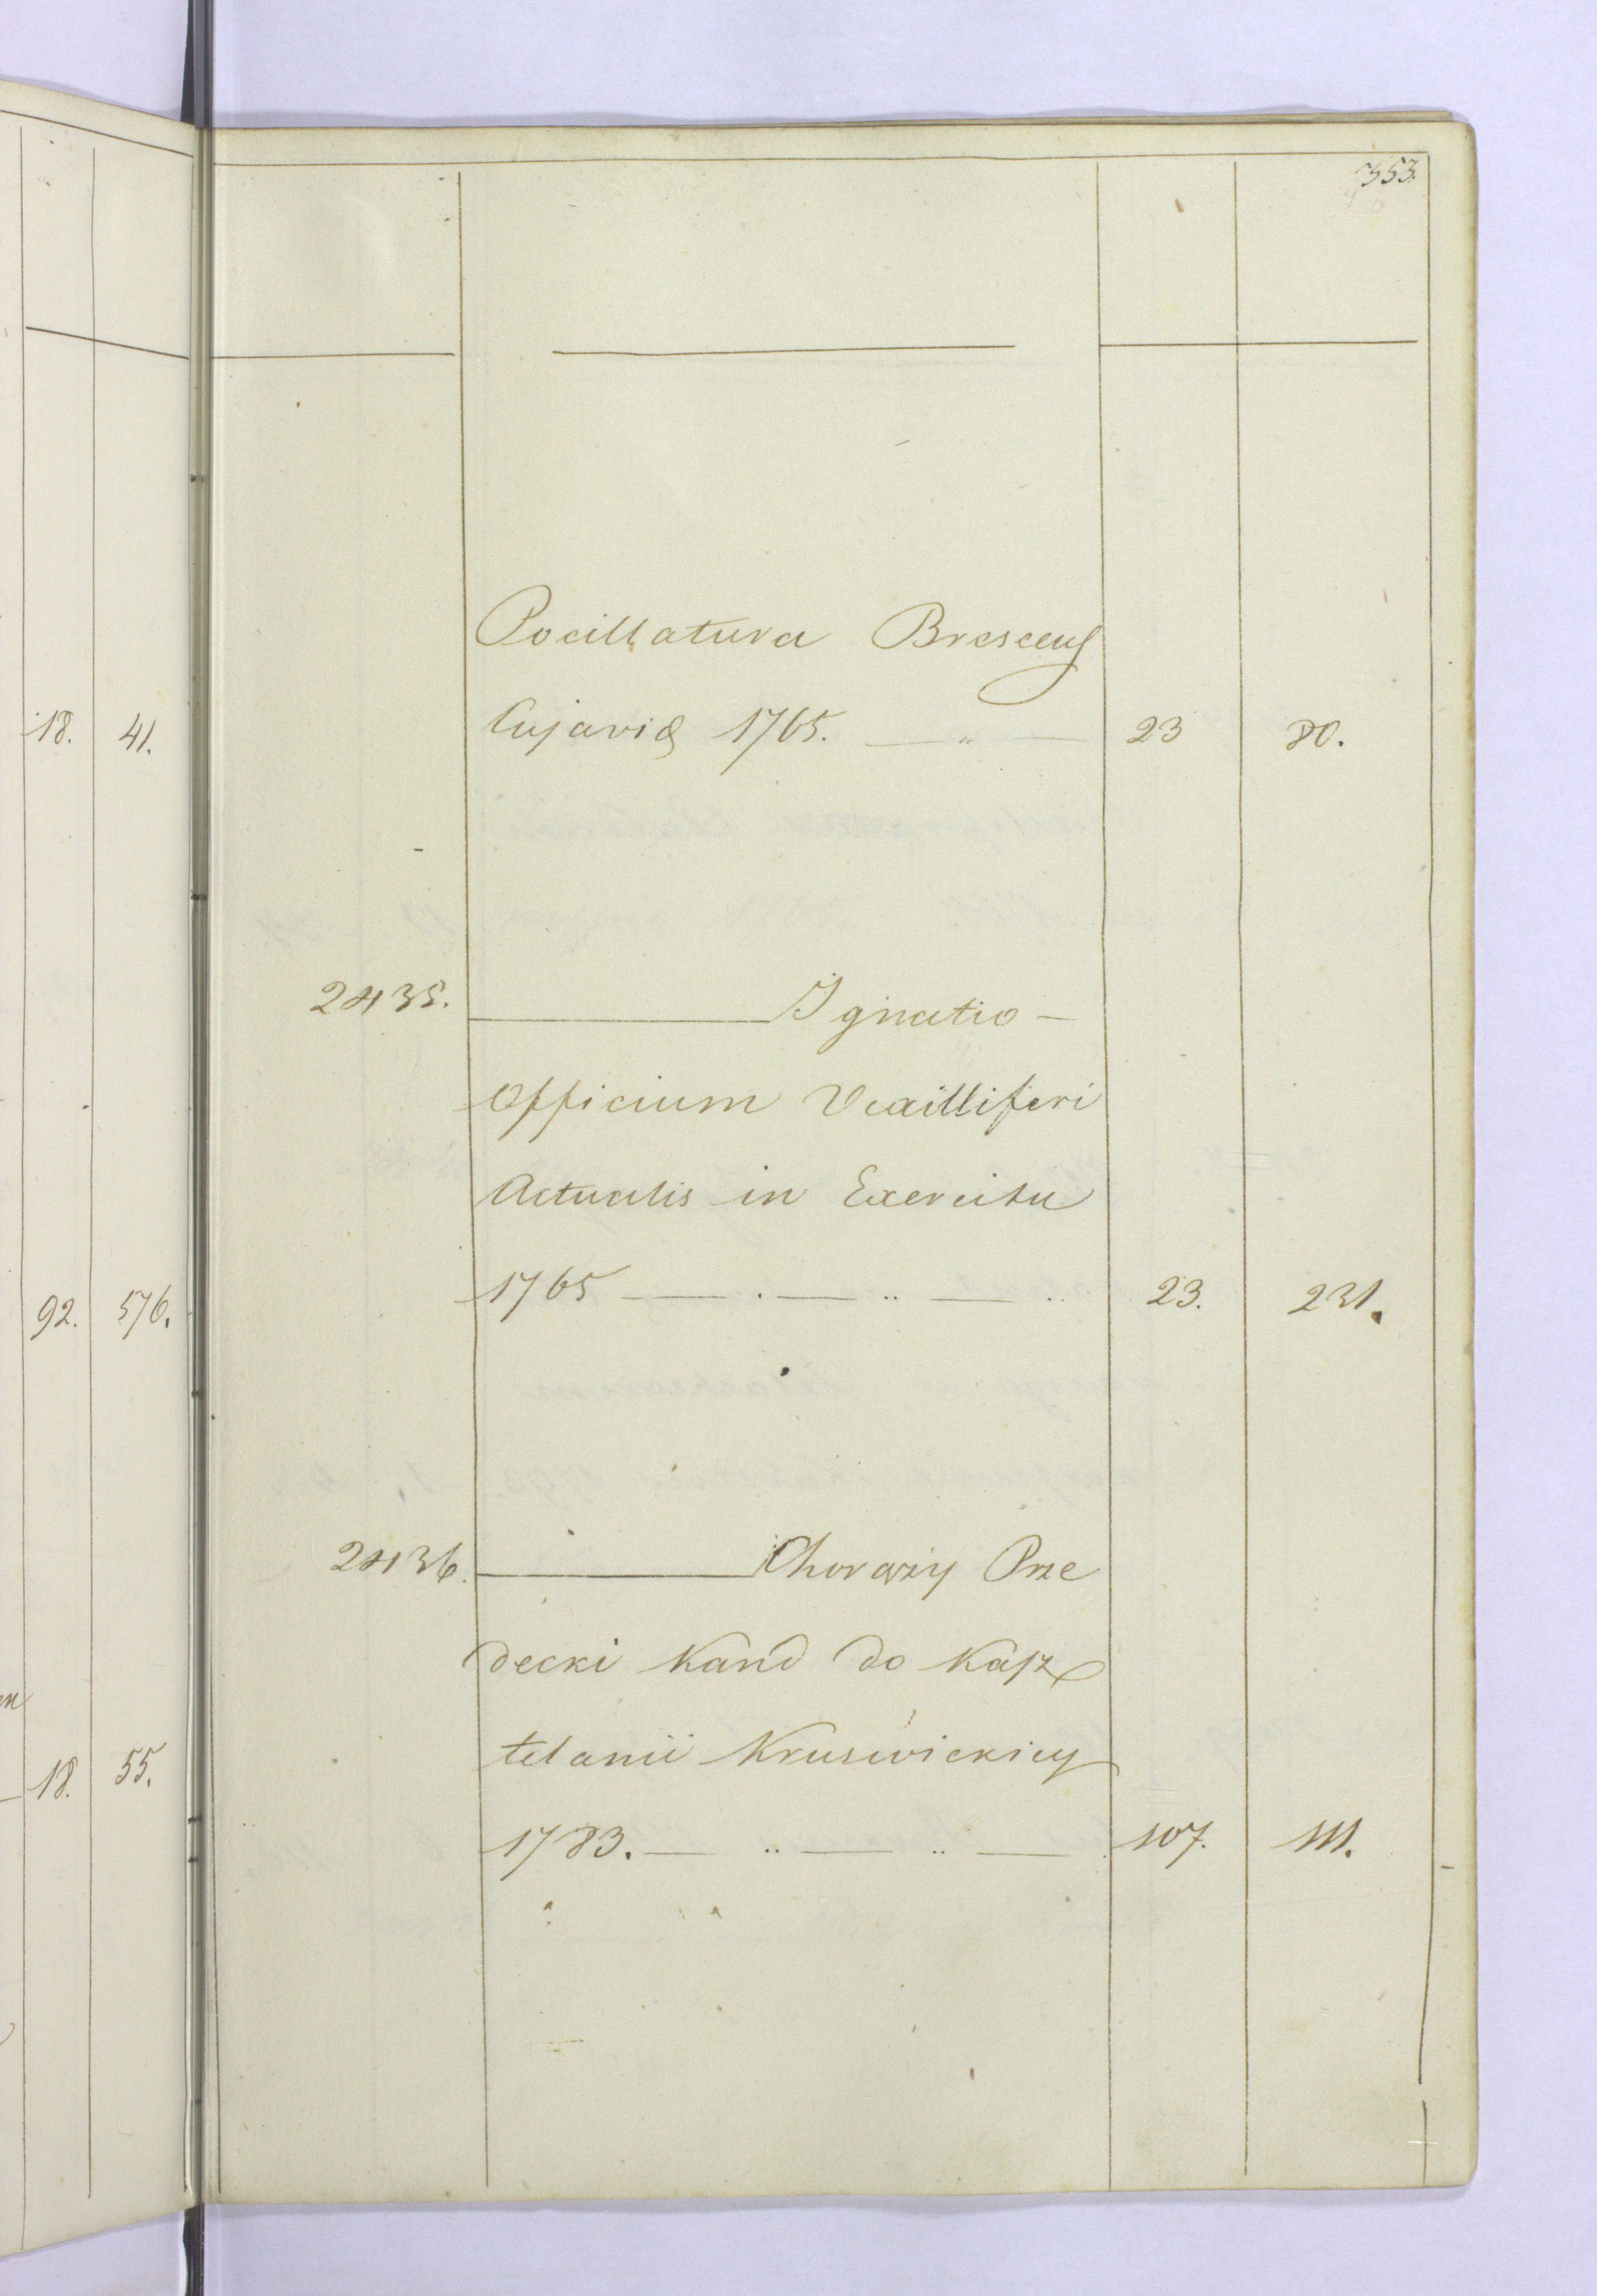 353.
Pocillatura Brescens
Cujaviæ 1765. — " — 23 80.
18. 41.
2435. Ignatio —
Officium Vexilliferi
Actualis in Exercitu
1765 — . — .. — .. 23. 231.
92. 576.
2436. Chorąży Prze
decki Kand do Kasz
telanii Kruswickiey
18. 55.
1783. — .. — .. — 107. 111.